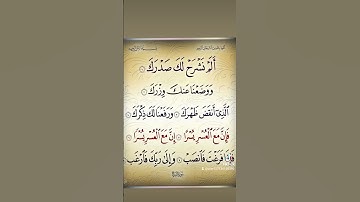 أَلَمْ نَشْرَحْ لَكَ صَدْرَكَ
وَوَضَعْنَا عَنكَ وِزْرَكَ
ٱلَّذِىٓ أَنقَضَ ظَهْرَكَ وَرَفَعْنَا لَكَ ذِكْرَكَ
فَإِنَّ مَعَ ٱلْعُسْرِ يُسْرًا إِنَّ مَعَ ٱلْعُسْرِ يُسْرًا
فَإِذَا فَرَغْتَ فَٱنصَبْ وَإِلَىٰ رَبِّكَ فَٱرْغَب